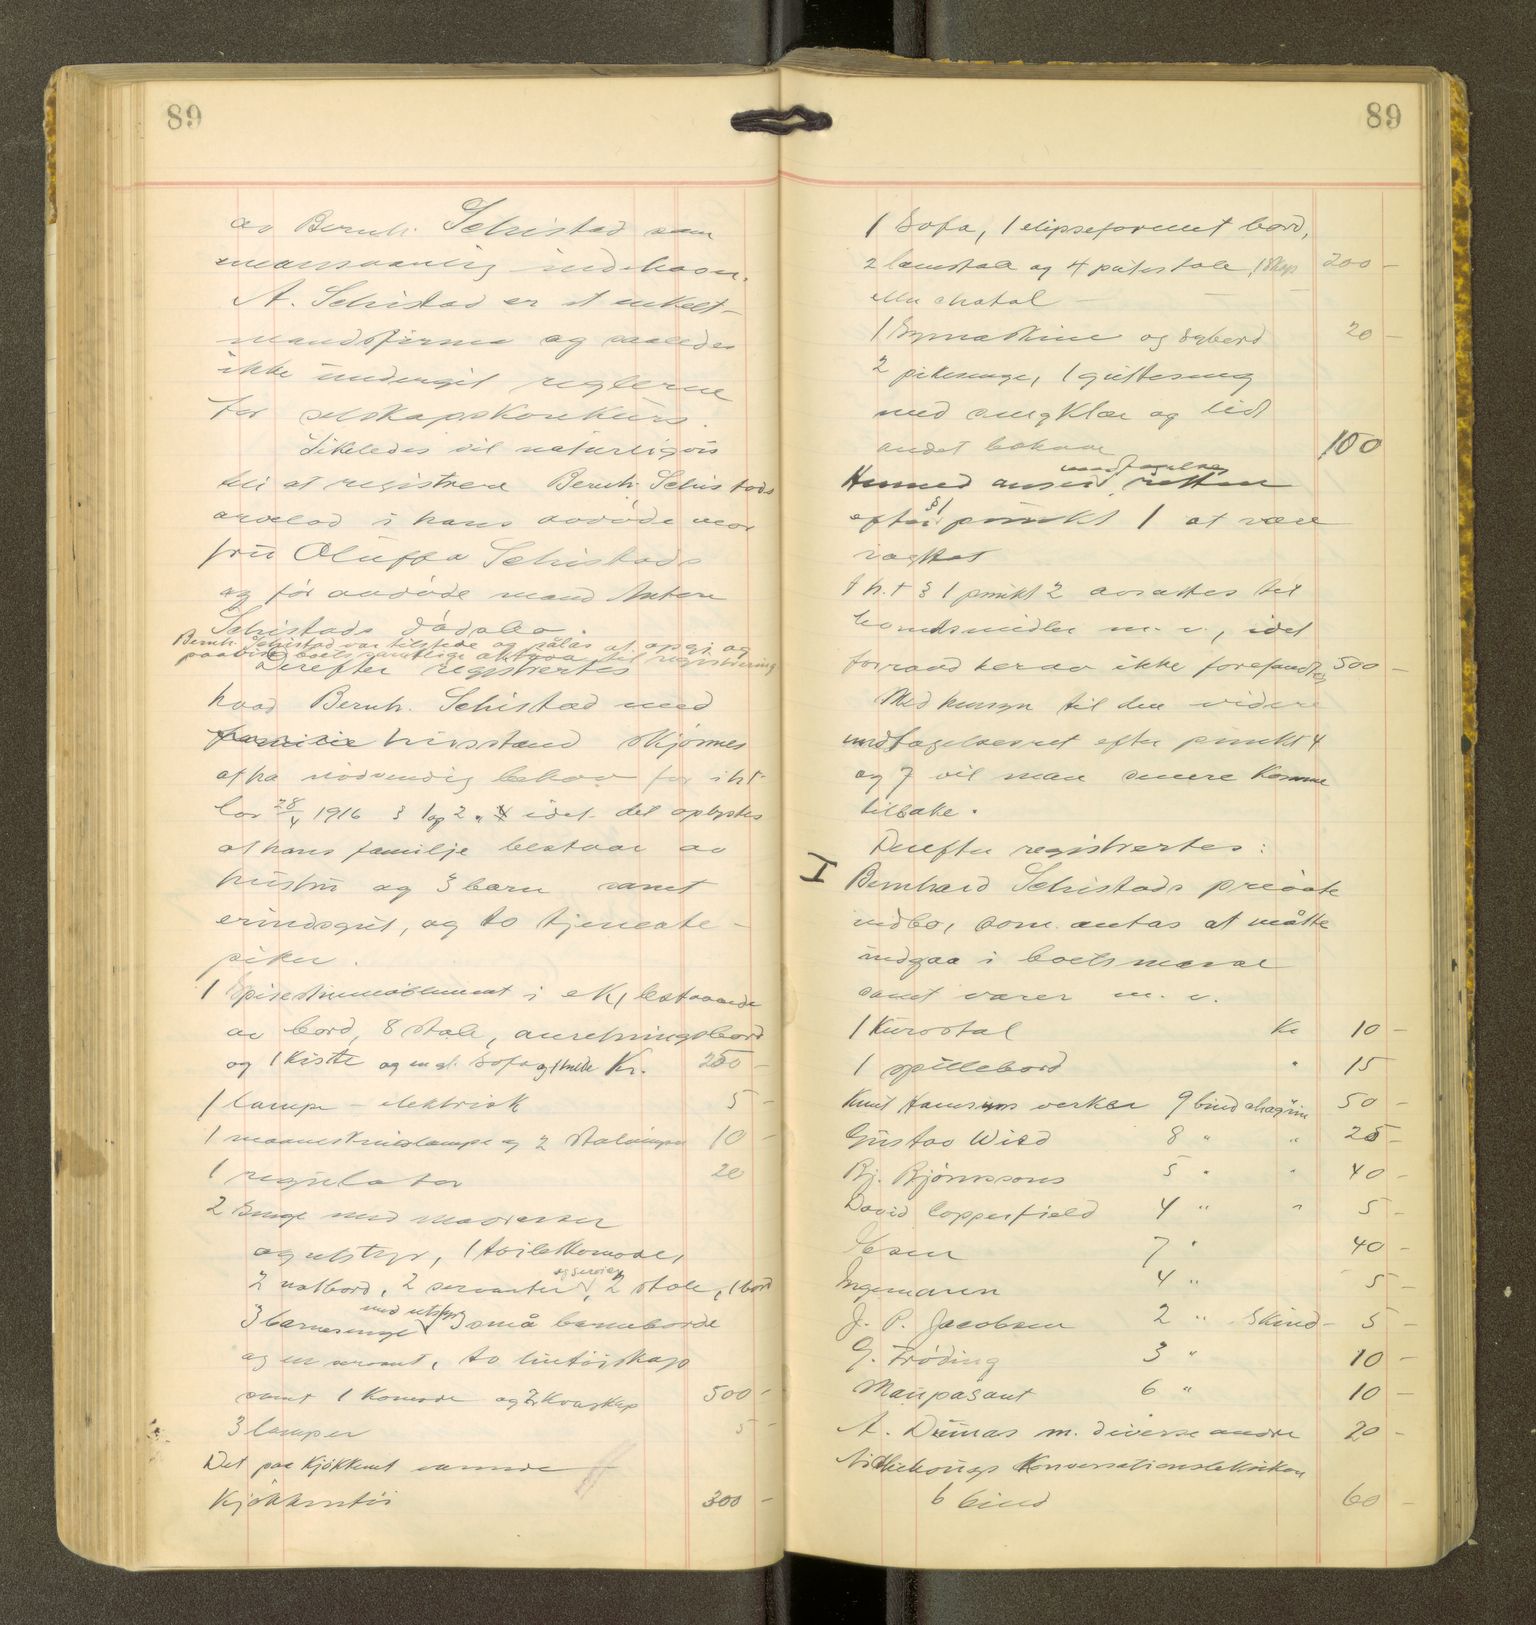 89
av Bernh. Schistad som
meansvarlig indehaver.
A. Schistad er et enkelt-
mandsfirma og saaledes
ikke undergit reglerne
for selskapskonkurs.
Likeledes vil naturligvis
bli at registrere Bernh. Schistads
arvelod i hans avdøde mor
fru Oluffa Schistads
og før avdøde mand Anton
Schistads dødsbo.
Bernh. Schistad var tilstede og pålas at opgi og
paavise boets samtlige aktiva til registrering
Derefter registrertes
hvad Bernh. Schistad med
familie husstand skjønnes
at ha nødvendig behov for iht.
lov 28/4 1916 § 1 og 2 idet det oplystes
at hans familje bestaar av
hustru og 3 barn samt
erindsgut, og to tjeneste-
piker.
1 Spisestuemøblement i ek, bestaaende
av bord, 8 stole, anretningsbord
og 1 kiste og en gl. sofa og 1 hilde Kr. 250 -
1 lampe - elektrisk 5 -
1 maaneskinslampe og 2 stålamper 10 -
1 regulator 20
2 senge med madrasser
og utstyr, 1 toiletkomode,
2 natbord, 2 servanter og servicer, 2 stole, 1 bord
3 barnesenge med utstyr 3 små barneborde
og en servant, to lintøiskap
samt 1 Komode og 2 Kvaskap 500 -
3 lamper 5 -
Det paa Kjøkkenet værende
Kjøkkentøi 300 -
89
1 Sofa, 1 elipseformet bord,
2 lænstole og 4 pidestole, 1 Skap 200 -
eller chatol
1 Symaskine og sybord 20 -
2 pikesenge, 1 gutteseng
med sengklær og lidt
andet behov 100
Hermed anser undtagelsesretten
efter § 1 punkt 1 at være
iagttat
I h.t § 1 punkt 2 avsattes til
levnedsmidler m. v., idet
forraad herav ikke forefandtes 500 -
Med hensyn til den videre
undtagelsesret efter punkt 4
og 7 vil man senere komme
tilbake.
Derefter registrertes:
I Bernhard Schistads private
indbo, som antas at måtte
indgaa i boets masse
samt varer m. v.
1 Kurvstol Kr 10 -
1 spillebord " 15
Knut Hamsuns verker 9 bind chagrin 50 -
Gustav Wied 8 " " 25 -
Bj. Bjørnssons 5 " " 40 -
David Copperfield 4 " " 5 -
Ibsen 7 " 40 -
Ingemann 4 " 5 -
J. P. Jacobsen 2 " Skind - 5 -
G. Frøding 3 " 10 -
Maupasant 6 " 10 -
A. Dumas m. diverse andre 20 -
Konversationsleksikon
6 bind 60 -